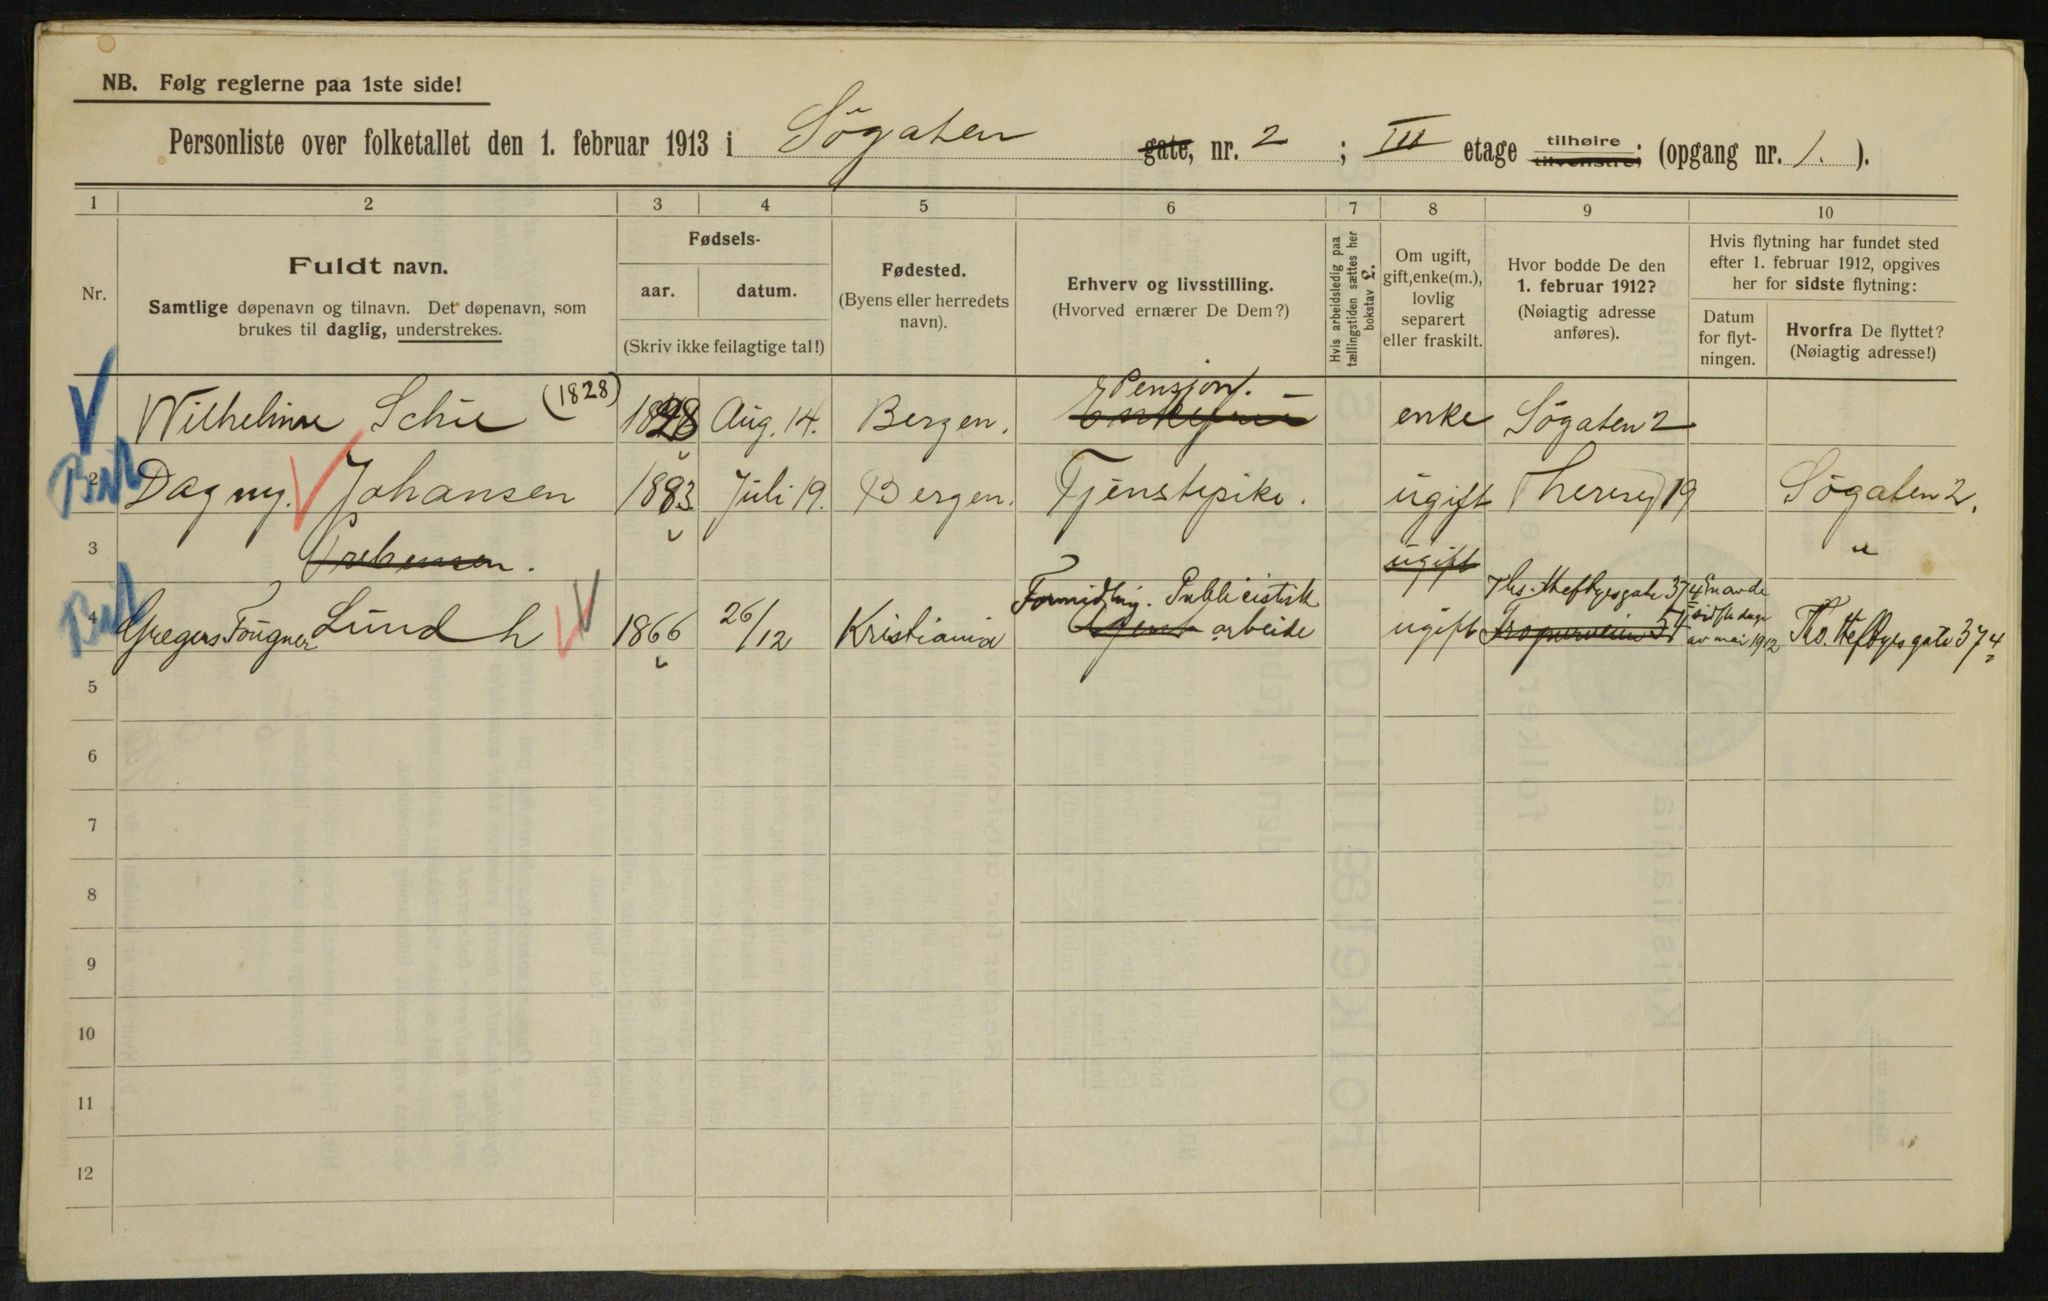 NB. Følg reglerne paa 1ste side!
Personliste over folketallet den 1. februar 1913 i Søgaten gate, nr. 2 ; III etage tilhøire tilvenstre; (opgang nr. 1. ).
1 2 3 4 5 6 7 8 9 10
Nr.
Fuldt navn.
Samtlige døpenavn og tilnavn. Det døpenavn, som
brukes til daglig, understrekes.
Fødsels-
aar. datum.
(Skriv ikke feilagtige tal!)
Fødested.
(Byens eller herredets
navn).
Erhverv og livsstilling.
(Hvorved ernærer De Dem?)
Hvis arbeidsledig paa
tællingstiden sættes her
bokstav L.
Om ugift,
gift, enke(m.),
lovlig
separert
eller fraskilt.
Hvor bodde De den
1. februar 1912?
(Nøiagtig adresse
anføres).
Hvis flytning har fundet sted
efter 1. februar 1912, opgives
her for sidste flytning:
Datum
for flyt-
ningen.
Hvorfra De flyttet?
(Nøiagtig adresse!)
Pensjon.
Wilhelmine Schie (1828) 1828 Aug. 14. Bergen. Enkefrue enke Søgaten 2
2 Dagny. Johansen 1883 Juli 19. Bergen. Tjenstepike. ugift 19 Søgaten 2.
3 ugift "
Formidling. Publicistisk Ths. Heftyesgate 37 4
4 Gregers Fougner Lund h 1866 26/12 Kristiania Agent arbeide ugift av mai 1912 Th. Heftyesgate 37 4
5
6
7
8
9
10
11
12